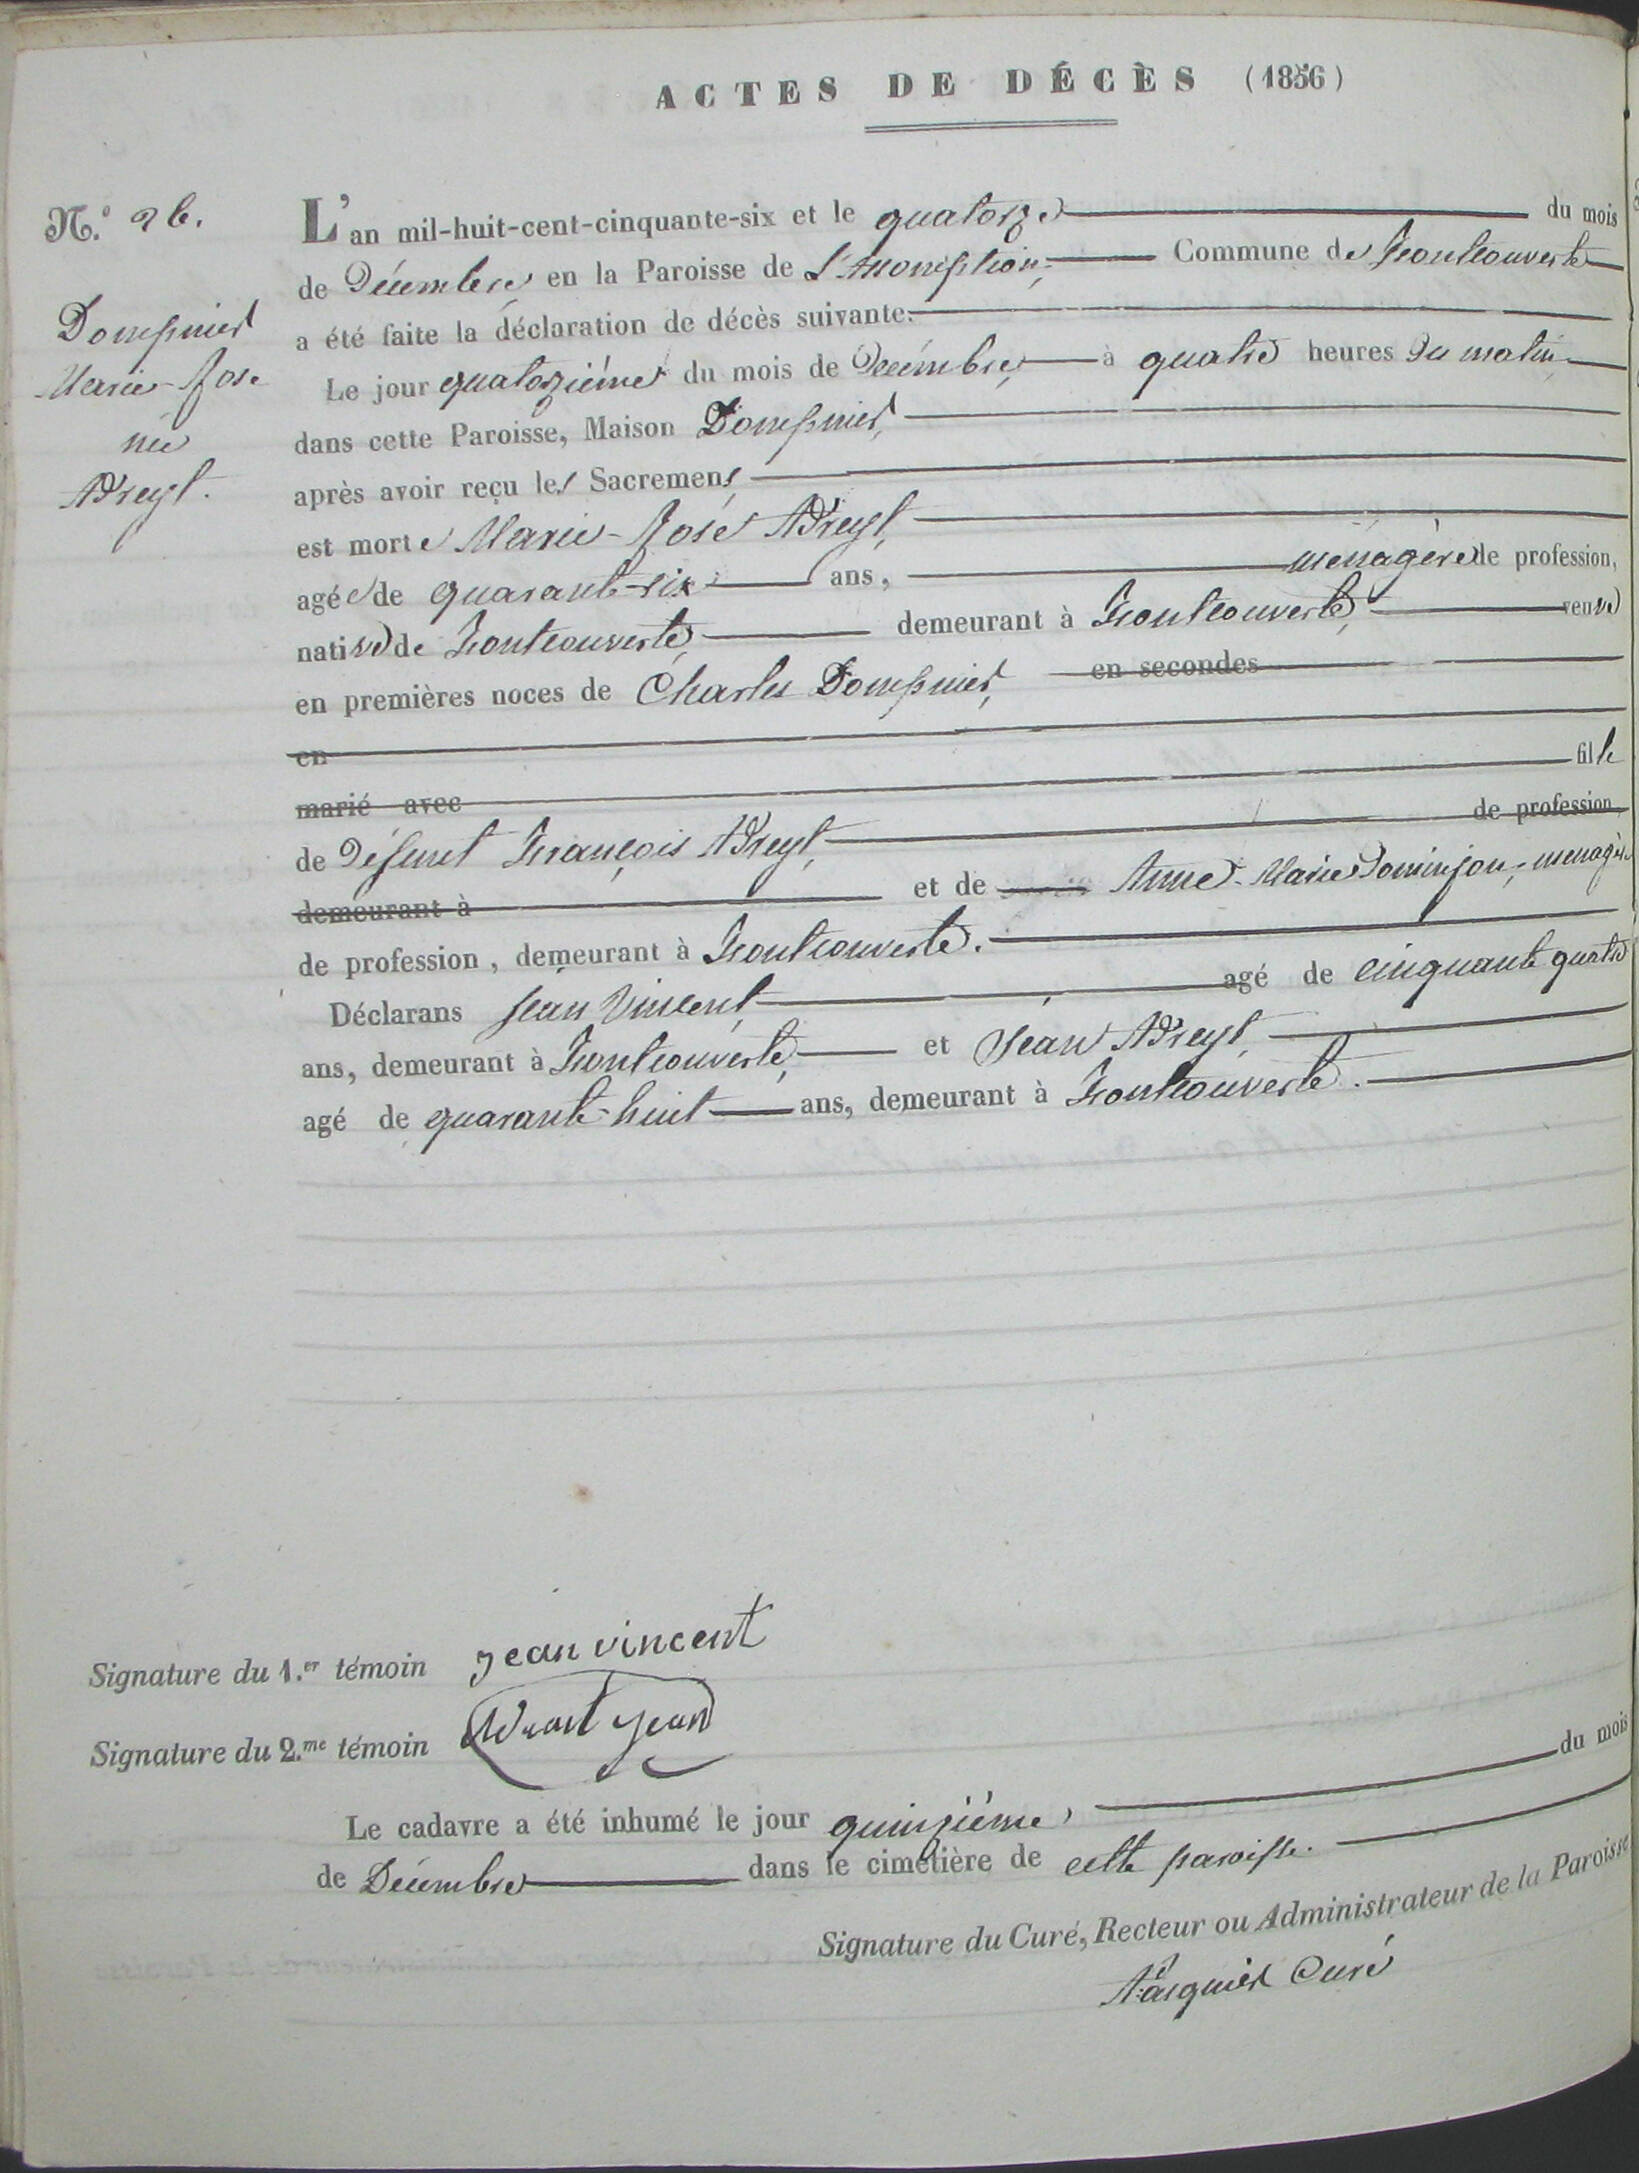 ACTES DE DÉCÈS (1856)
N.o 26.
Dompnier
Marie-Rose
née
L'an mil-huit-cent-cinquante-six et le quatorze du mois
de Décembre, en la Paroisse de L'Assomption, Commune de Fontcouverte
a été faite la déclaration de décès suivante.
Le jour quatorzième du mois de Décembre, à quatre heures du matin,
dans cette Paroisse, Maison Dompnier,
après avoir reçu les Sacremens,
est morte Marie-Rose
agée de quarante-six ans, ménagère de profession,
native de Fontcouverte, demeurant à Fontcouverte, veuve
en premières noces de Charles Dompnier, en secondes
en
marié avec fille
de défunt François de profession,
demeurant à et de Anne-Marie Dominjon, menagère
de profession, demeurant à Fontcouverte.
Déclarans Jean Vincent, agé de cinquante quatre
ans, demeurant à Fontcouverte, et Jean
agé de quarante-huit ans, demeurant à Fontcouverte.
Signature du 1.er témoin jean vincent
Signature du 2.me témoin jean
Le cadavre a été inhumé le jour quinzième, du mois
de Décembre dans le cimetière de cette paroisse.
Signature du Curé, Recteur ou Administrateur de la Paroisse
Curé